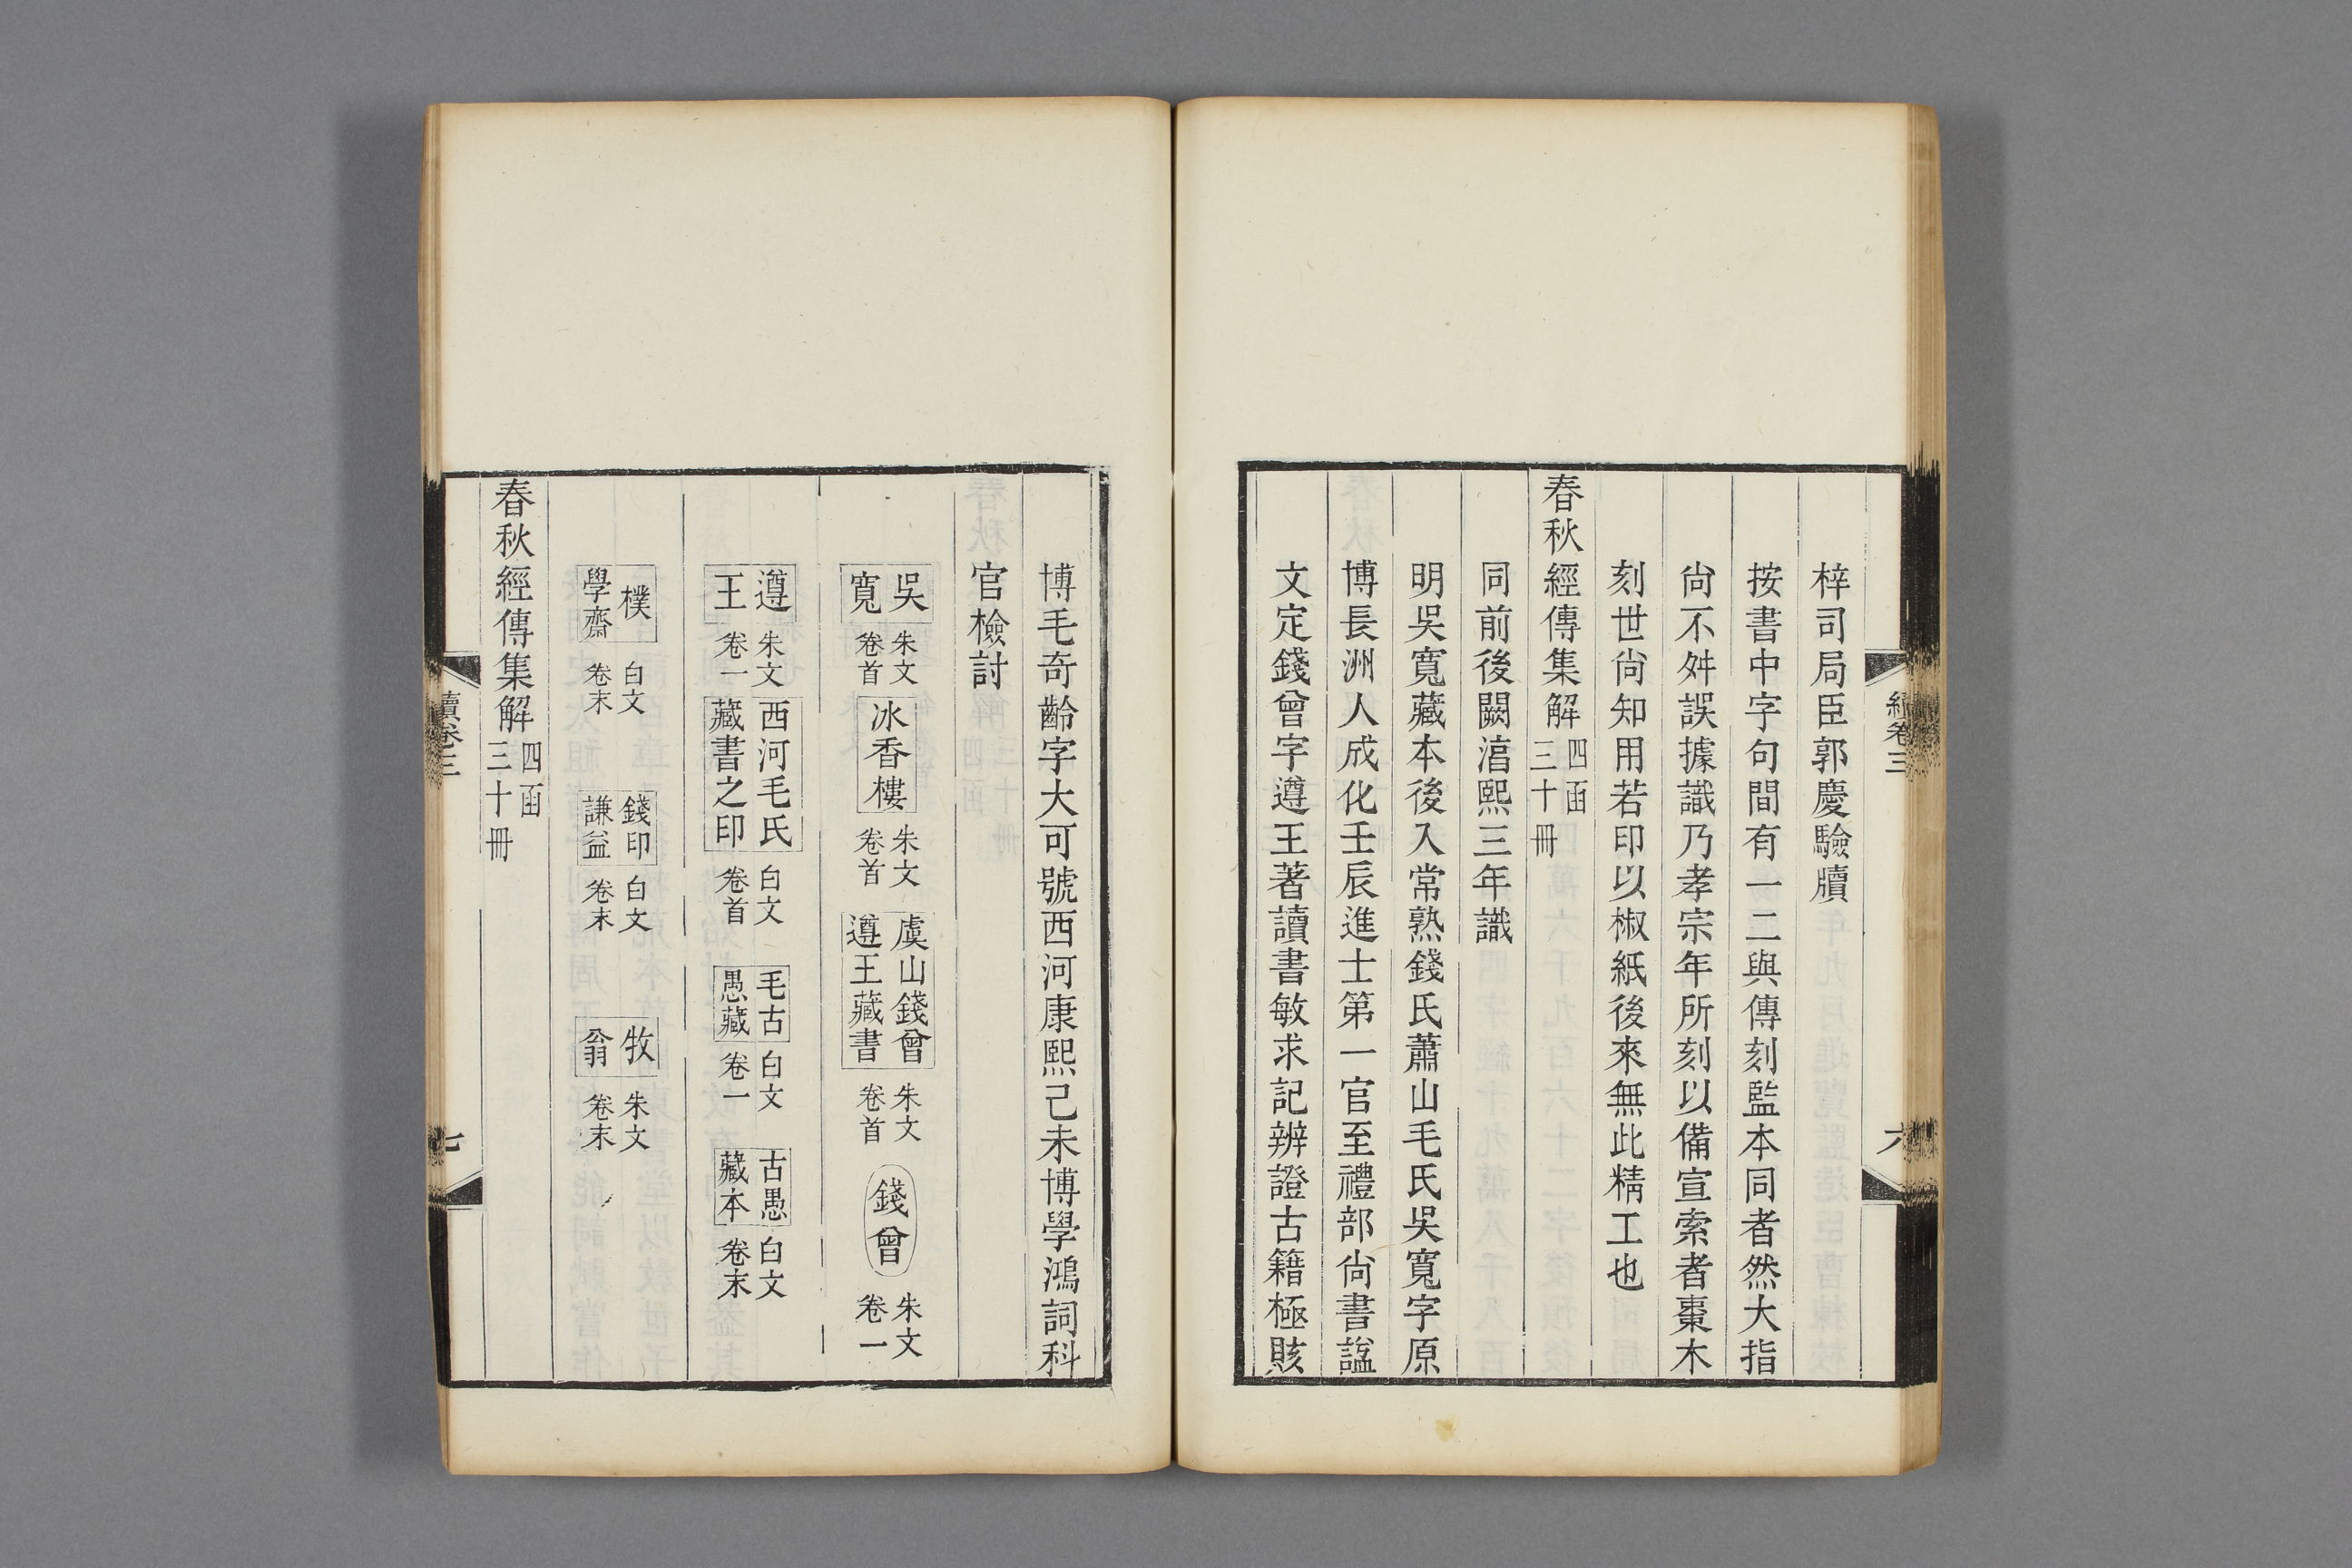 梓司局臣郭慶驗牘
按書中字句間有一二與傳刻監本同者然大指
尙不舛誤據識乃孝宗年所刻以備宣索者棗木
刻世尙知用若印以椒紙後來無此精工也
春秋經傳集解四函三十冊
同前後闕淳熙三年識
明吳寬藏本後入常熟錢氏蕭山毛氏吳寬字原
博長洲人成化壬辰進士第一官至禮部尙書諡
文定錢曾字遵王著讀書敏求記辨證古籍極賅
續卷三
六
博毛奇齡字大可號西河康熙己未博學鴻詞科
官檢討
吳寬 朱文卷首 冰香樓 朱文卷首 虞山錢曾遵王藏書 朱文卷首 錢曾 朱文卷一
遵王 朱文卷一 西河毛氏藏書之印 白文卷首 毛古愚藏 白文卷一 古愚藏本 白文卷末
樸學齋 白文卷末 錢印謙益 白文卷末 牧翁 朱文卷末
春秋經傳集解四函三十冊
續卷三
七